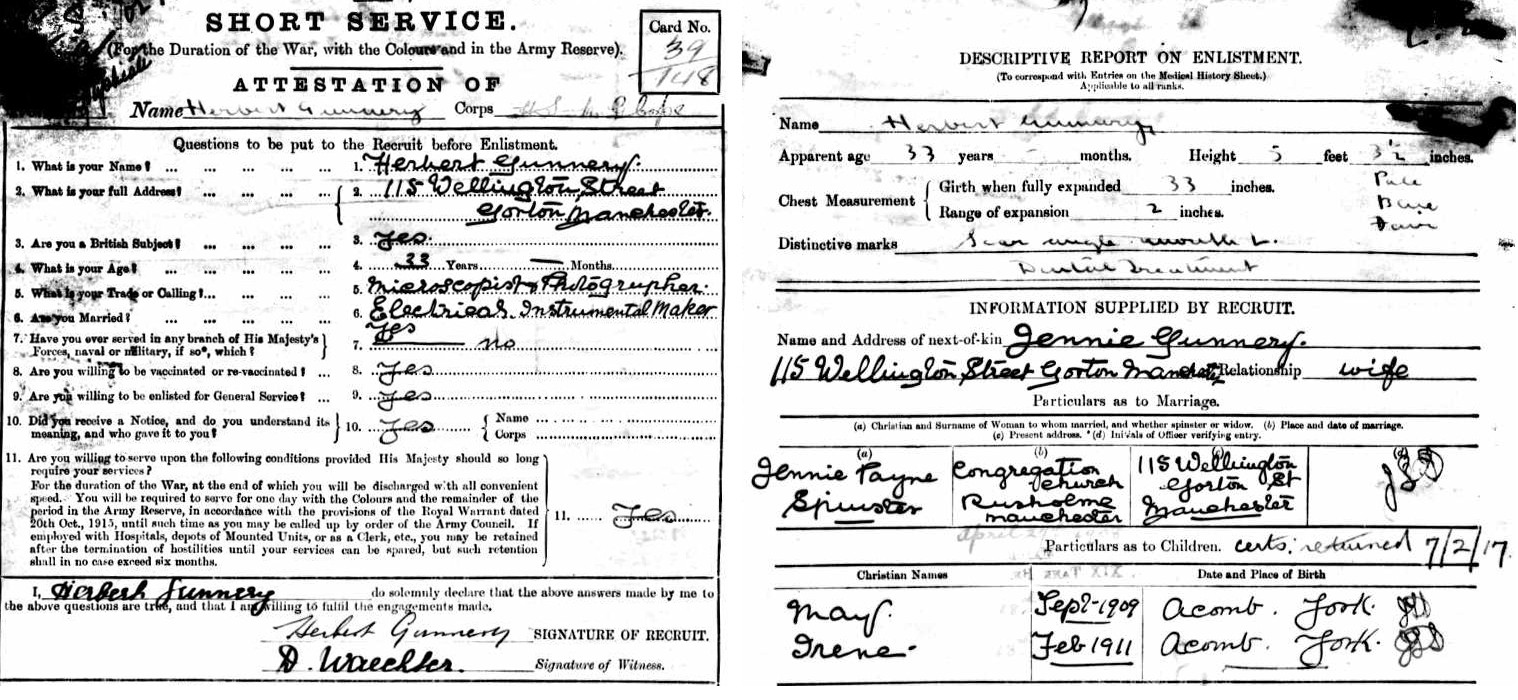 SHORT SERVICE.
(For the Duration of the War, with the Colours and in the Army Reserve).
Card No.
39
148
ATTESTATION OF
Name Herbert Gunnery Corps
Questions to be put to the Recruit before Enlistment.
1. What is your Name? ... ... ... ... 1. Herbert Gunnery.
2. What is your full Address? ... ... ... 2. 115 Wellington Street
Gorton Manchester.
3. Are you a British Subject? ... ... ... 3. Yes.
4. What is your Age? ... ... ... ... 4. 33 Years — Months.
5. What is your Trade or Calling? ... ... ... 5. Microscopist & Photographer.
6. Are you Married? ... ... ... ... 6. Electrical Instrumental Maker
Yes
7. Have you ever served in any branch of His Majesty's
Forces, naval or military, if so*, which? 7. no
8. Are you willing to be vaccinated or re-vaccinated? ... 8. Yes
9. Are you willing to be enlisted for General Service? ... 9. Yes
10. Did you receive a Notice, and do you understand its
meaning, and who gave it to you? 10. Yes Name
Corps
11. Are you willing to serve upon the following conditions provided His Majesty should so long
require your services?
For the duration of the War, at the end of which you will be discharged with all convenient
speed. You will be required to serve for one day with the Colours and the remainder of the
period in the Army Reserve, in accordance with the provisions of the Royal Warrant dated
20th Oct., 1915, until such time as you may be called up by order of the Army Council. If
employed with Hospitals, depots of Mounted Units, or as a Clerk, etc., you may be retained
after the termination of hostilities until your services can be spared, but such retention
shall in no case exceed six months.
11. Yes
I, Herbert Gunnery do solemnly declare that the above answers made by me to
the above questions are true, and that I am willing to fulfil the engagements made.
Herbert Gunnery SIGNATURE OF RECRUIT.
D. Waechter. Signature of Witness.
DESCRIPTIVE REPORT ON ENLISTMENT.
(To correspond with Entries on the Medical History Sheet.)
Applicable to all ranks.
Name Herbert Gunnery
Apparent age 33 years - months. Height 5 feet 3½ inches.
Chest Measurement
Girth when fully expanded 33 inches.
Range of expansion 2 inches.
Distinctive marks Scar angle mouth L.
Dental Treatment
INFORMATION SUPPLIED BY RECRUIT.
Name and Address of next-of-kin Jennie Gunnery.
115 Wellington Street Gorton Relationship wife
Particulars as to Marriage.
(a) Christian and Surname of Woman to whom married, and whether spinster or widow. (b) Place and date of marriage.
(c) Present address. (d) Initials of Officer verifying entry.
(a) (b)
Jennie Payne
Spinster
Congregation
Church
Rusholme
Manchester
115 Wellington
Gorton St
Manchester
Particulars as to Children. certs. returned 7/2/17.
Christian Names Date and Place of Birth
May. Sept-1909 Acomb. York.
Irene- Feb 1911 Acomb. York.